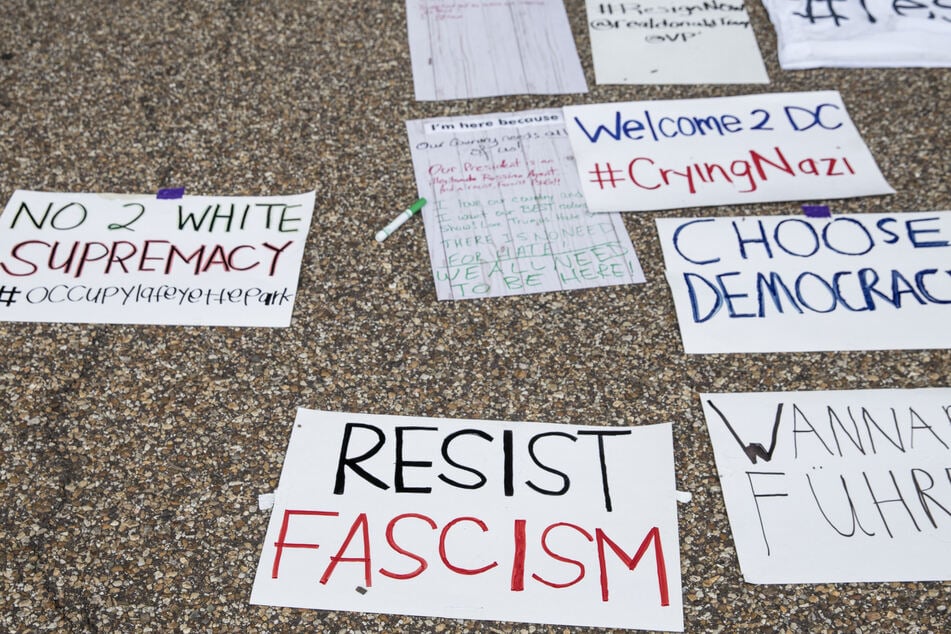 #ResignNow
@realdonaldTrump
@VP
I'm here because
Our Country needs all
of us!
Our President is an
I love our country and
I want our
THERE IS NO NEED
FOR HATE!
WE ALL NEED
TO BE HERE!
Welcome 2 DC
#CryingNazi
NO 2 WHITE
SUPREMACY
#OCCUPYlafeyettePark
CHOOSE
DEMOCRAC
RESIST
FASCISM
WANNA
FÜHR